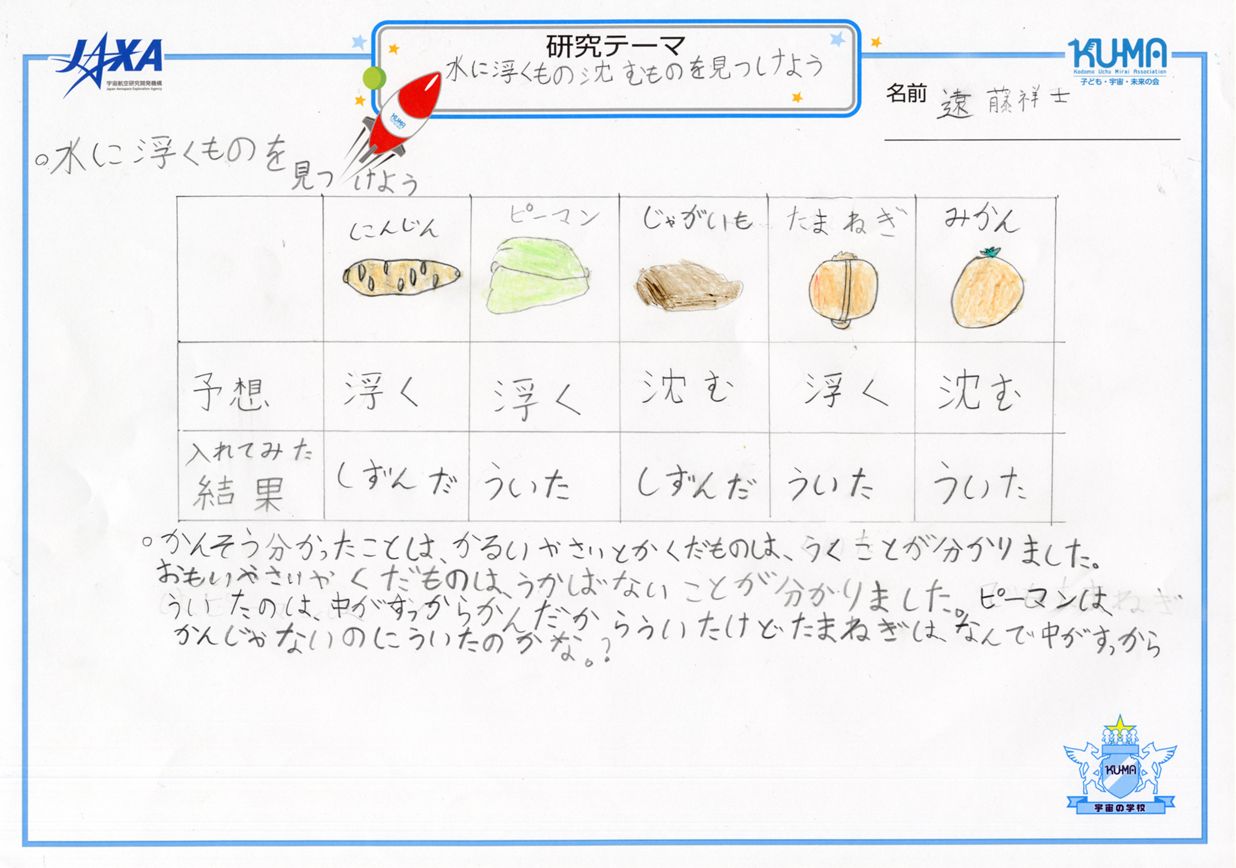 JAXA
宇宙航空研究開発機構
Japan Aerospace Exploration Agency
研究テーマ
水に浮くもの沈むものを見つけよう
KU-MA
Kodomo Uchu Mirai Association
子ども・宇宙・未来の会
名前 遠藤祥士
。水に浮くものを見つけよう
KUMA
にんじん ピーマン じゃがいも たまねぎ みかん
予想 浮く 浮く 沈む 浮く 沈む
入れてみた
結果 しずんだ ういた しずんだ ういた ういた
。かんそう分かったことは、かるいやさいとかくだものは、うくことが分かりました。
おもいやさいやくだものは、うかばないことが分かりました。ピーマンは、
ういたのは、中がすっからかんだからういたけどたまねぎは、なんで中がすっから
かんじゃないのにういたのかな。?
KU-MA
宇宙の学校